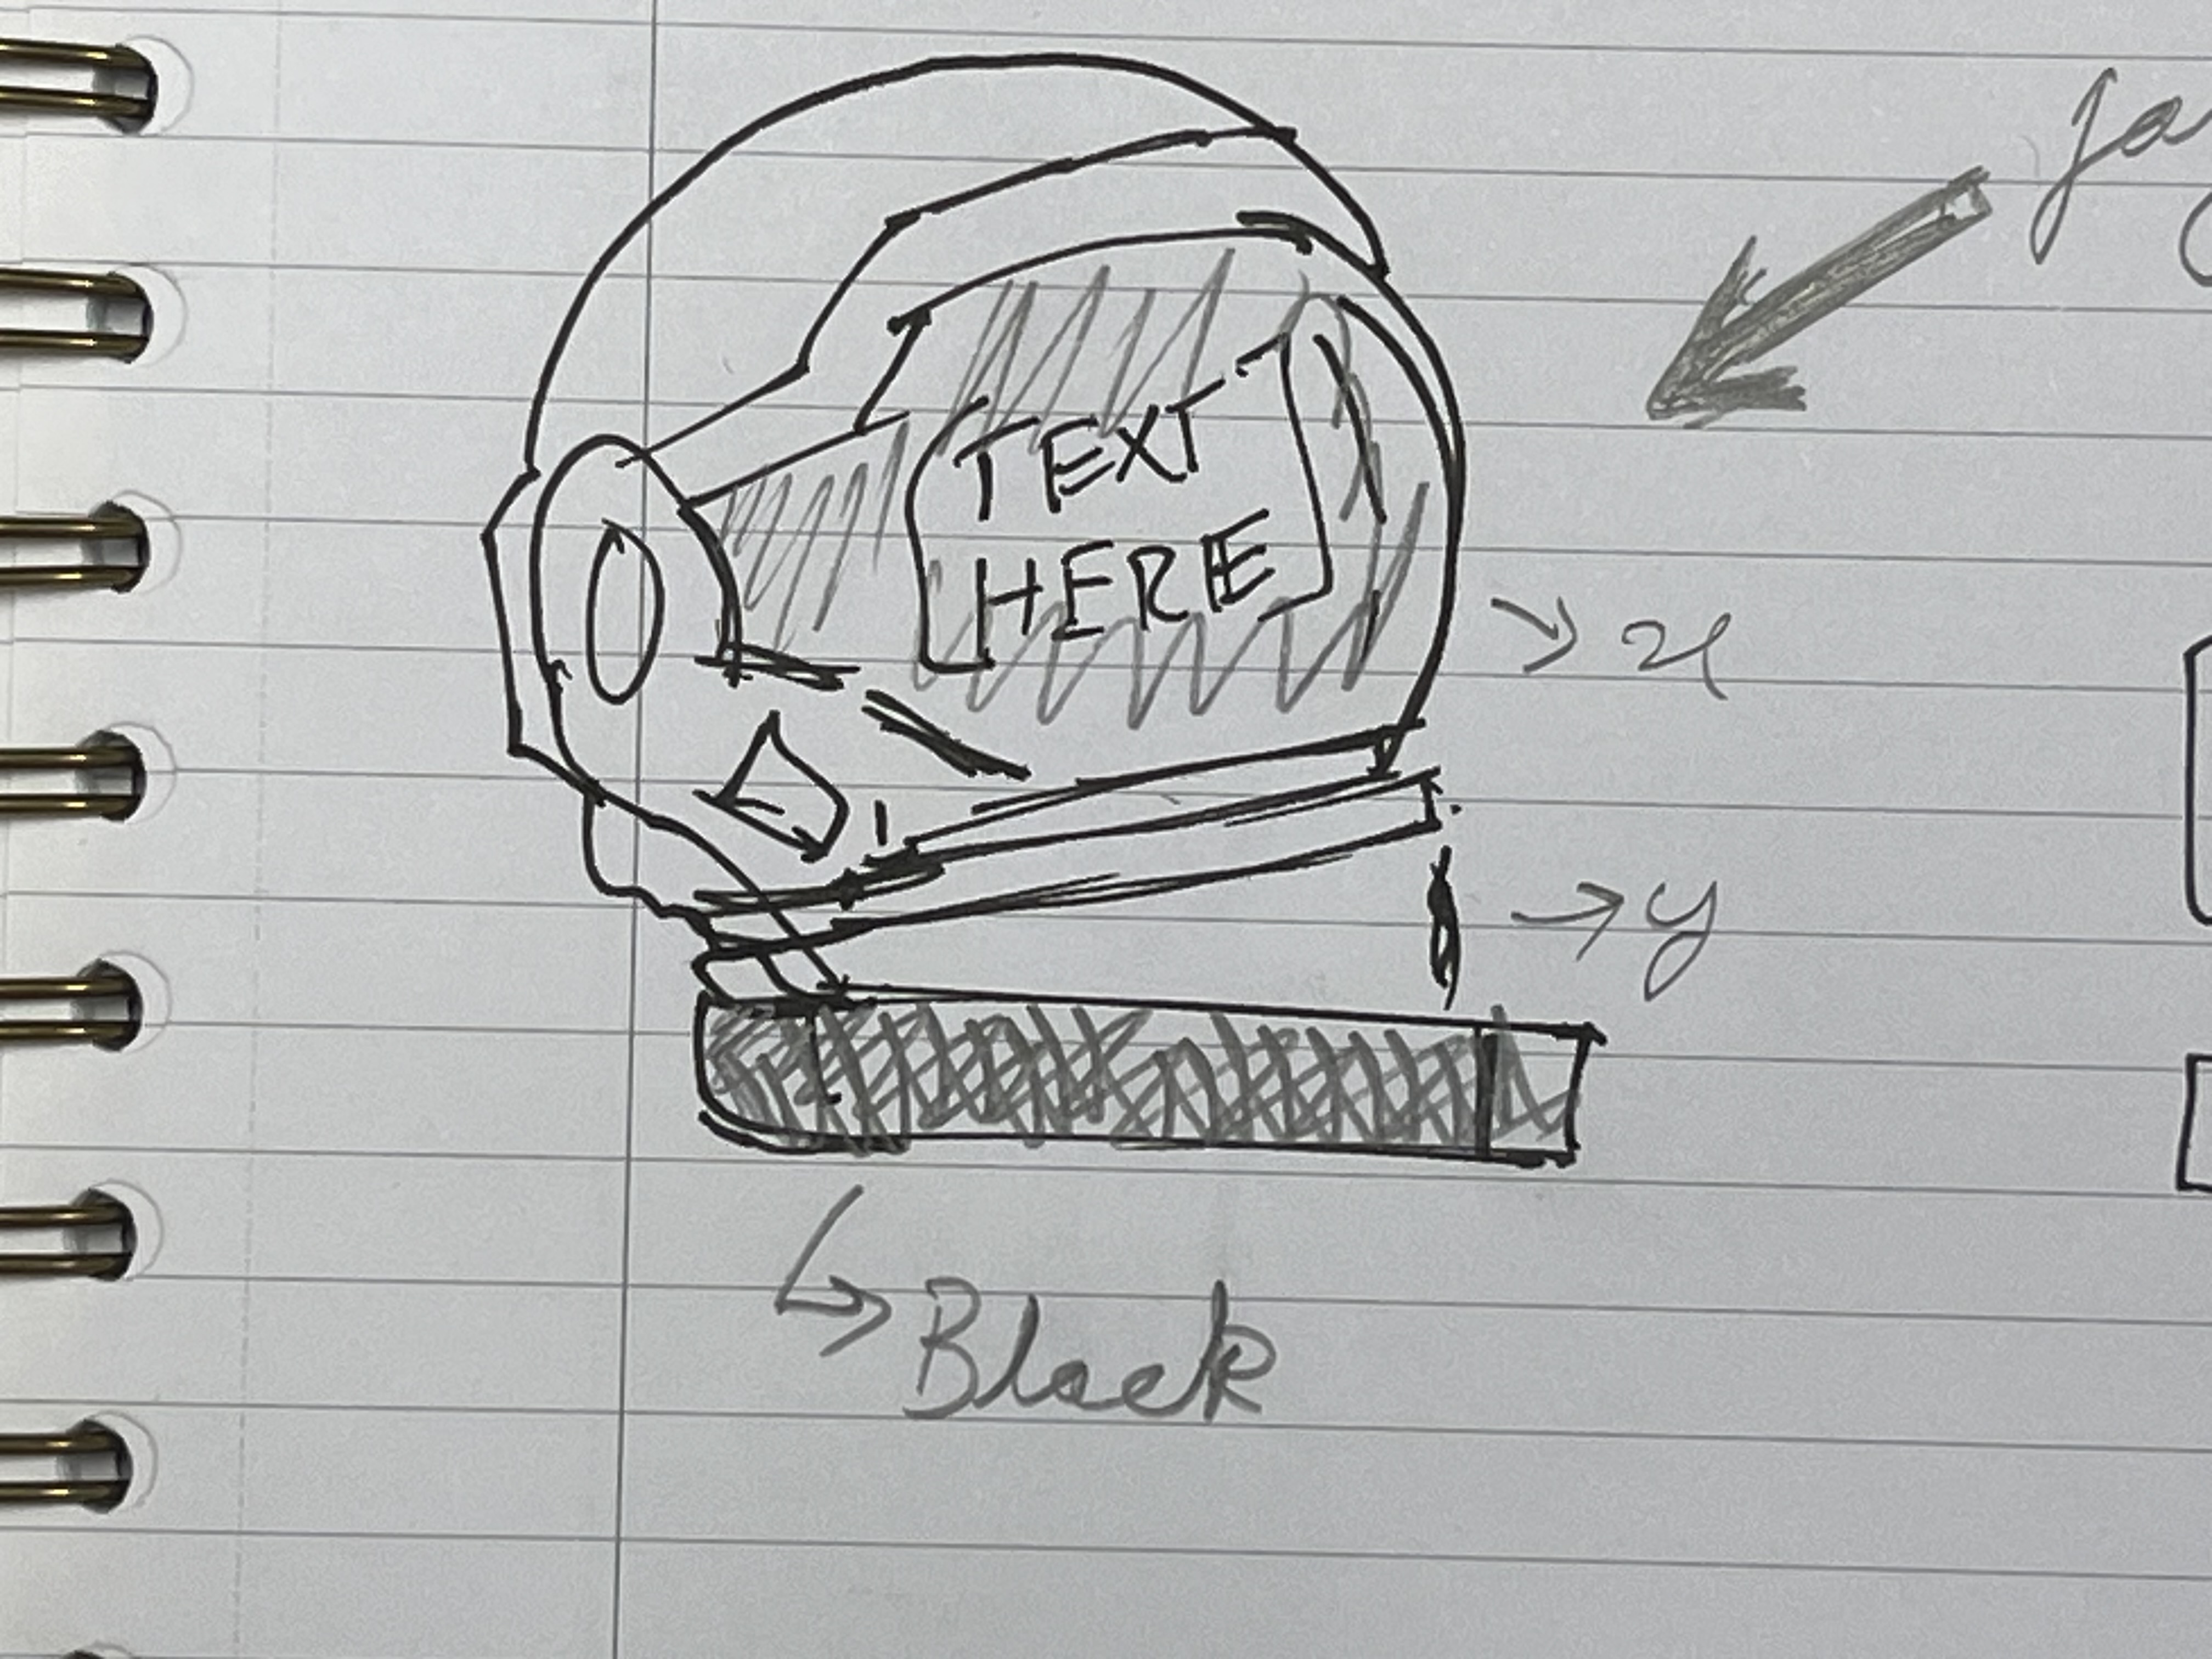 TEXT
HERE
x
y
Black